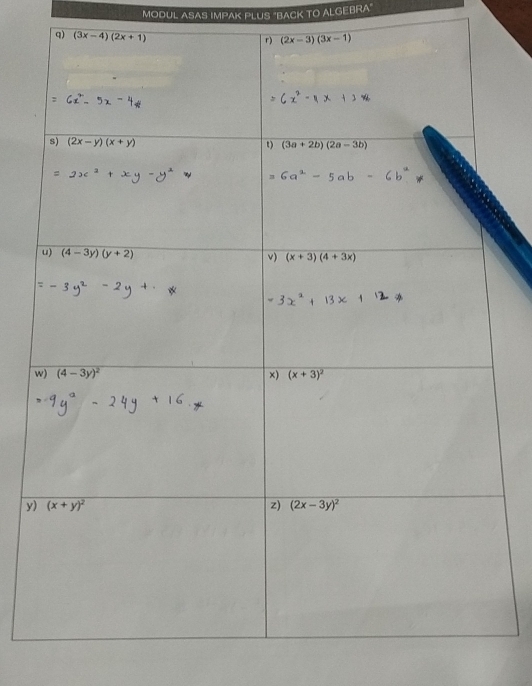 MODUL ASAS IMPAK PLUS "BACK TO ALGEBRA"
q) (3x – 4) (2x + 1)
= 6x² - 5x - 4
r) (2x – 3) (3x – 1)
= 6x² - 11x + 3
s) (2x – y) (x + y)
= 2x² + xy - y²
t) (3a + 2b) (2a – 3b)
= 6a² - 5ab - 6b²
u) (4 – 3y) (y + 2)
= - 3y² - 2y +
v) (x + 3) (4 + 3x)
= 3x² + 13x + 12
w) (4 – 3y)²
= 9y² - 24y + 16
x) (x + 3)²
y) (x + y)²
z) (2x – 3y)²